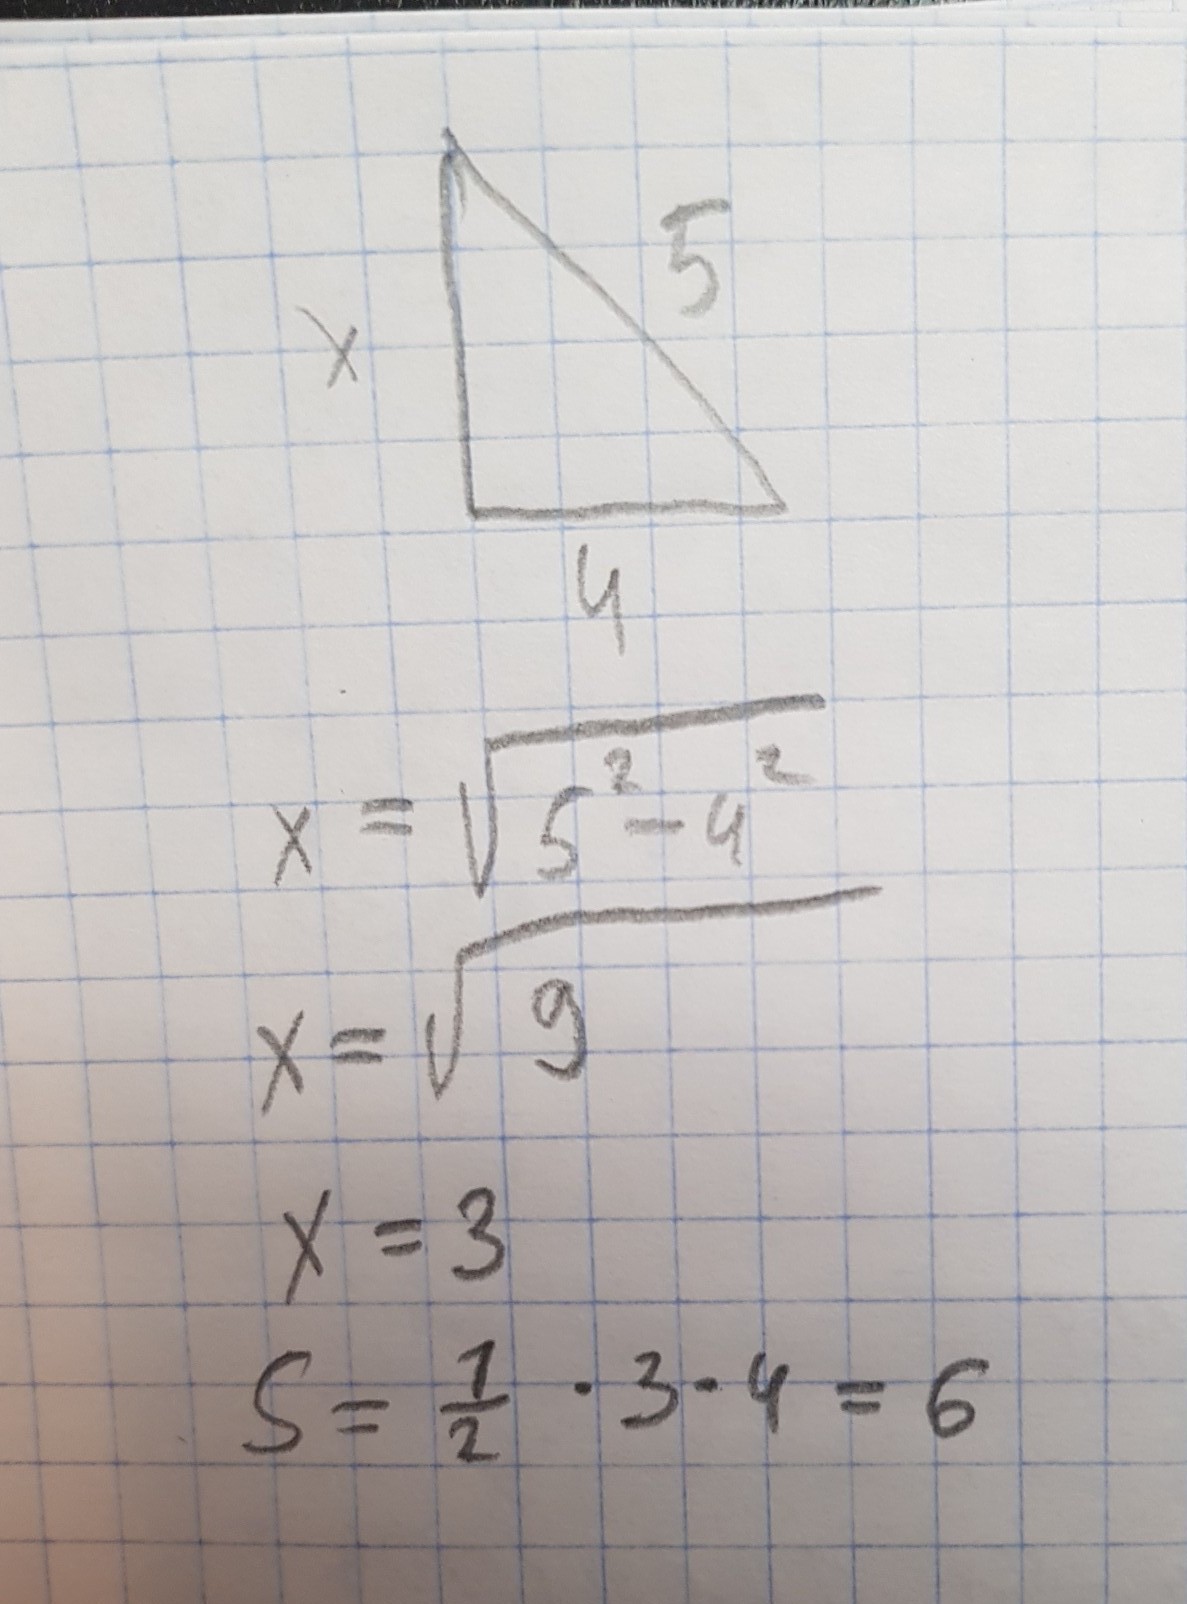 5
x
4
x = √(5² - 4²)
x = √9
x = 3
S = 1/2 · 3 · 4 = 6